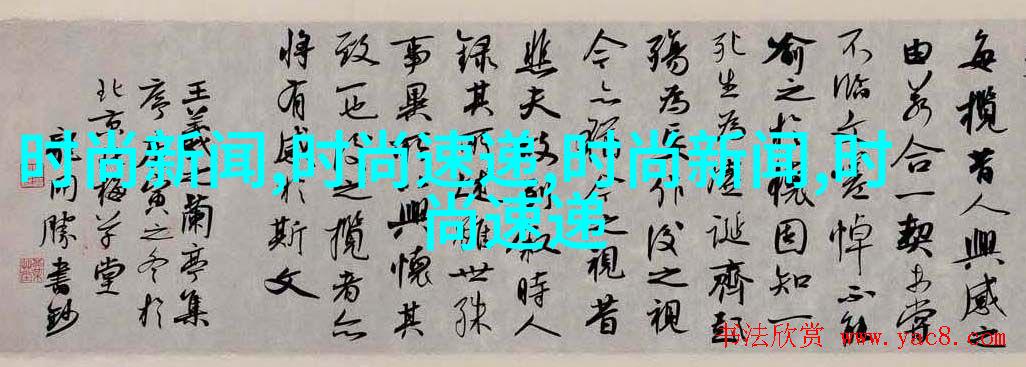 每揽昔人興感之
由若合一契未嘗
不临文嗟悼不能
喻之於懷固知一
死生為虚誕齊彭
殤為妄作後之視
今亦猶今之視昔
悲夫故列叙時人
録其所述雖世殊
事異所以興懷其
致一也後之攬者亦
将有感於斯文
王羲之蘭亭集
序庚寅之冬於
北京梅草堂
同勝書鈔
时尚新闻,时尚速递,时尚新闻,时
尚速递
书法欣赏 www.yac8.com